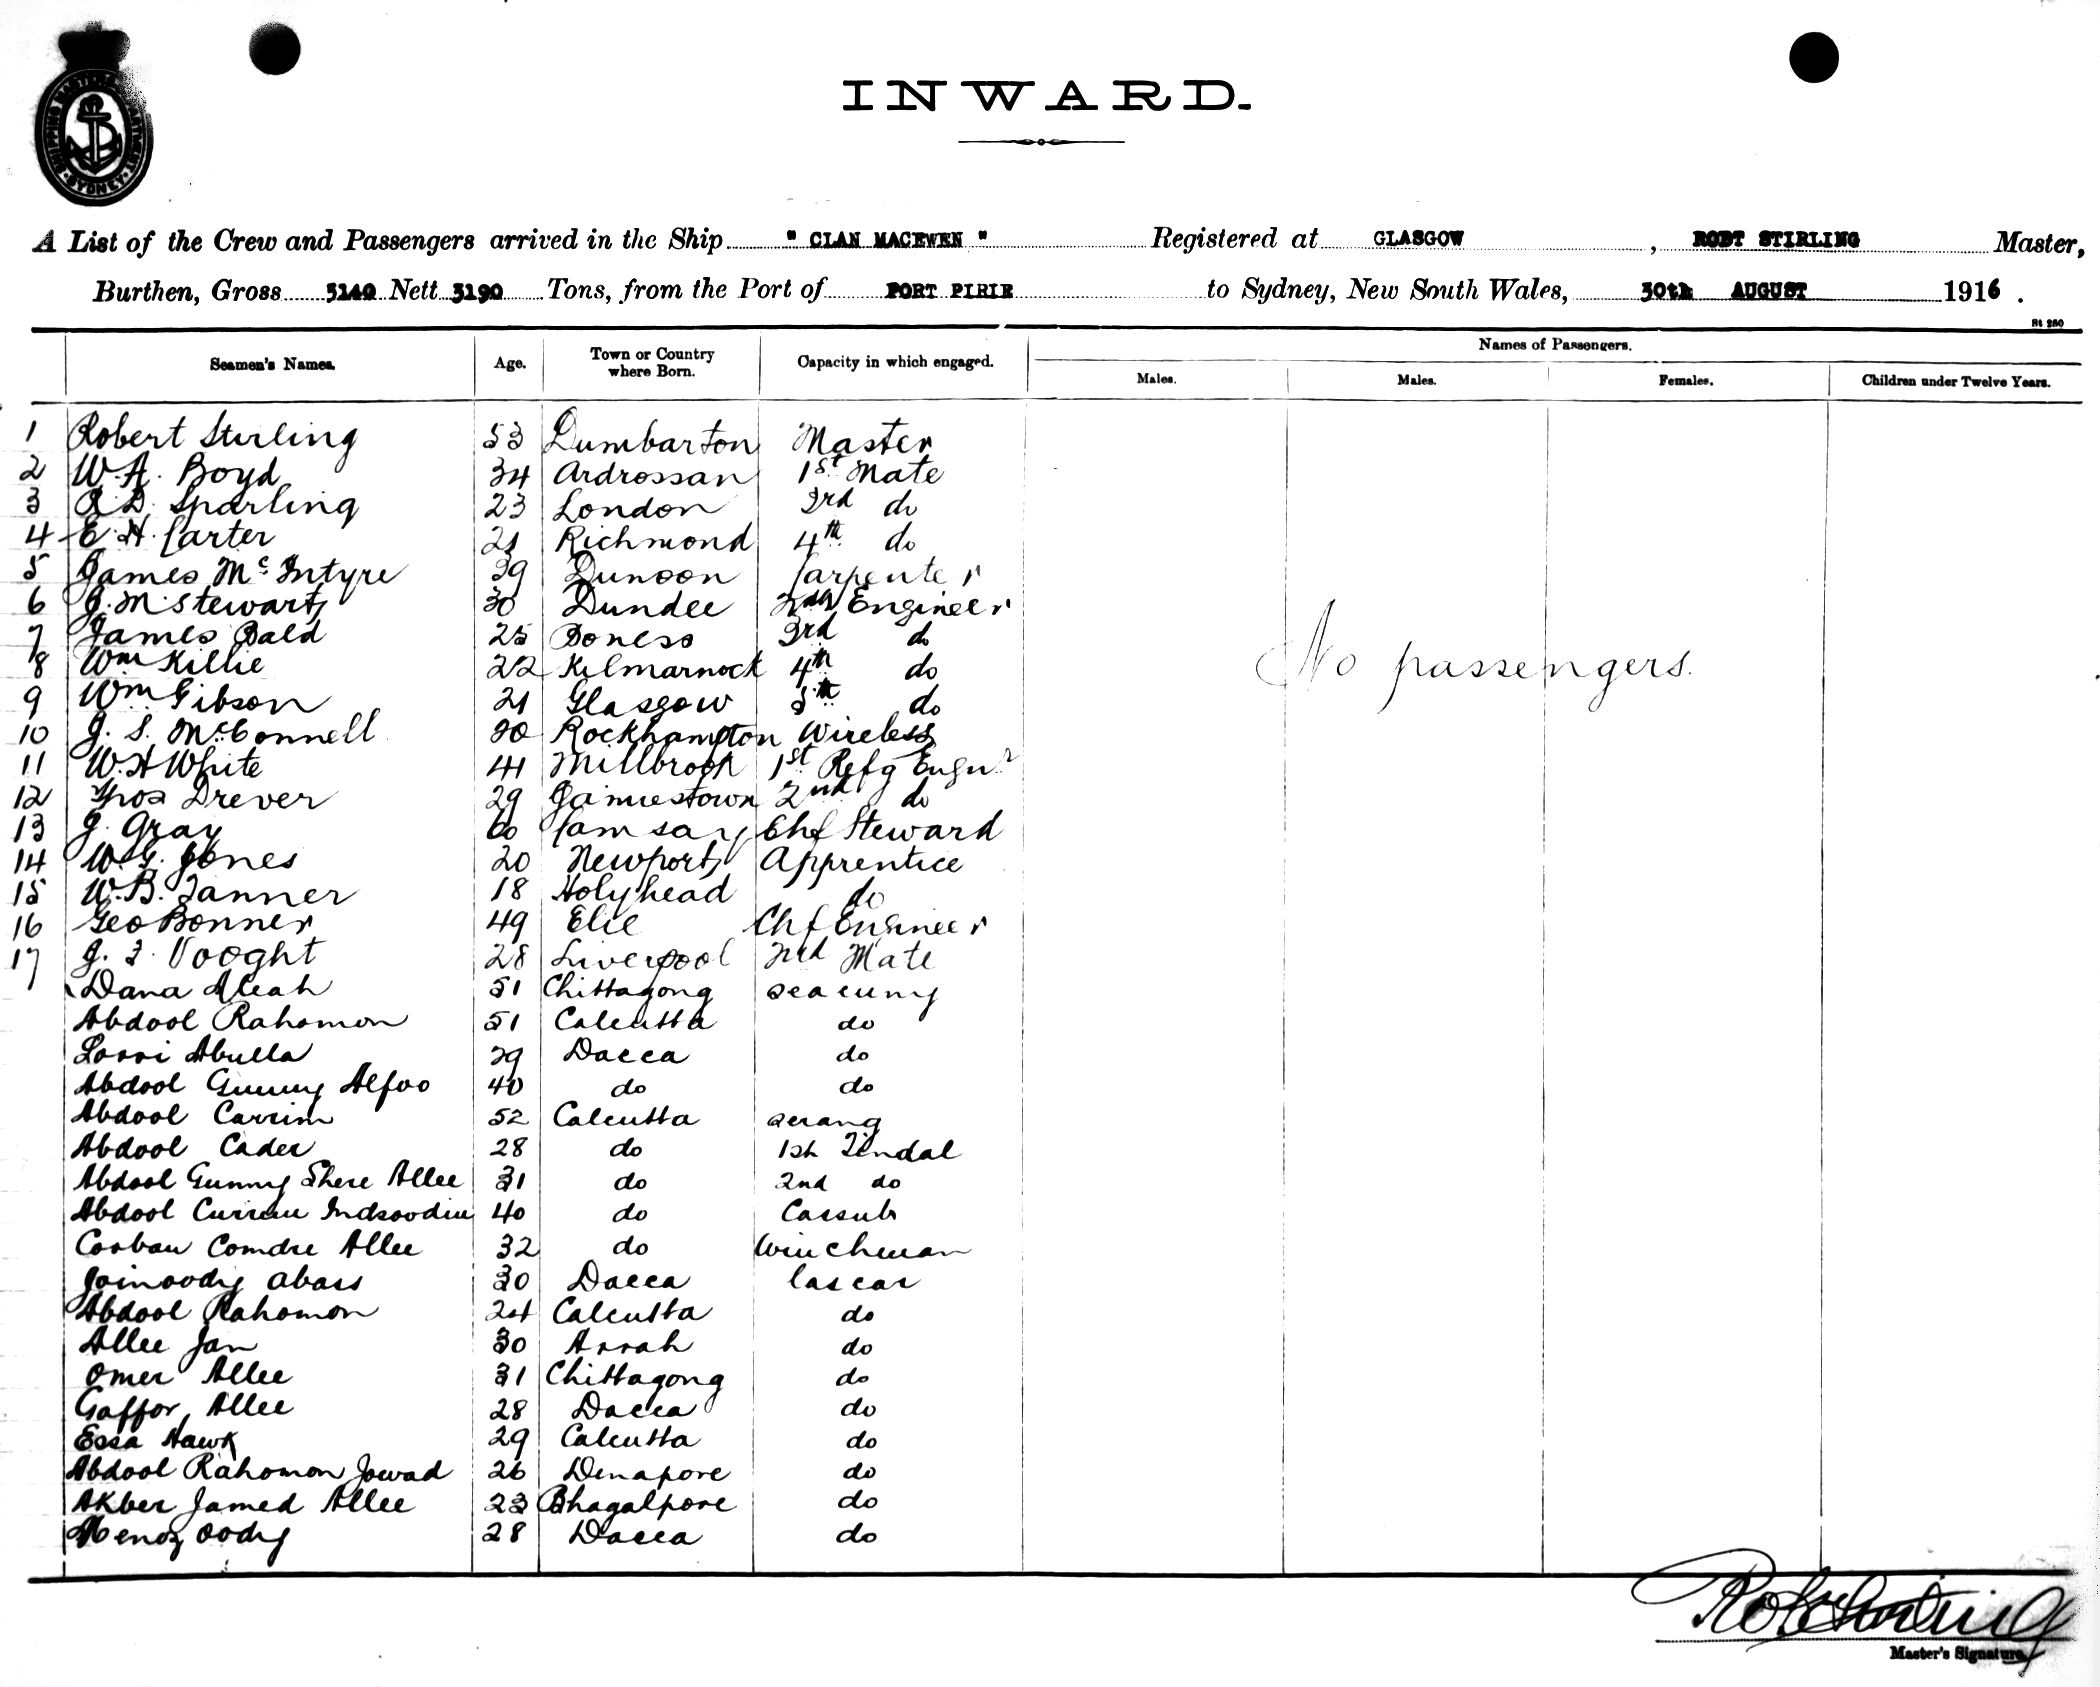 SHIPPING MASTER'S DEPARTMENT SYDNEY
INWARD.
A List of the Crew and Passengers arrived in the Ship " CLAN MACEWEN " Registered at GLASGOW , ROBT STIRLING Master,
Burthen, Gross 5140 Nett 3190 Tons, from the Port of PORT PIRIE to Sydney, New South Wales, 30th AUGUST 1916 .
St 280
Seamen's Names. Age. Town or Country where Born. Capacity in which engaged. Names of Passengers.
Males. Males. Females. Children under Twelve Years.
1 Robert Stirling 53 Dumbarton Master
2 W.A. Boyd 34 Ardrossan 1st Mate
3 R.D. Sparling 23 London 3rd do
4 E.H. Carter 21 Richmond 4th do
5 James McIntyre 39 Dunoon Carpenter
6 J.M Stewart 30 Dundee 2nd Engineer
7 James Bald 25 Boness 3rd do
8 Wm Killie 22 Kilmarnock 4th do
No passengers.
9 Wm Gibson 21 Glasgow 5th do
10 J. S. McConnell 20 Rockhampton Wireless
11 W.H White 41 Millbrook 1st Refg Engnr
12 Thos Drever 29 Jamestown 2nd do
13 J. Gray 60 Ramsay Chf Steward
14 W.G. Jones 20 Newport Apprentice
15 W.B. Tanner 18 Holyhead do
16 Geo Bonner 49 Elie Chf Engineer
17 J. F. Vooght 28 Liverpool 2nd Mate
Dana Meah 51 Chittagong seacunny
Abdool Rahomon 51 Calcutta do
Abulla 29 Dacca do
Abdool Gunny Alfoo 40 do do
Abdool Carrim 52 Calcutta serang
Abdool Cader 28 do 1st Tindal
Abdool Gunny Shere Allee 31 do 2nd do
Abdool 40 do Cassub
Corban Comdre Allee 32 do winchman
Joinoody Abass 30 Dacca lascar
Abdool Rahomon 24 Calcutta do
Allee Jan 30 Arrah do
Omer Allee 31 Chittagong do
Gaffor Allee 28 Dacca do
Essa Hawk 29 Calcutta do
Abdool Rahomon Jowad 26 Dinapore do
Akber Jamed Allee 23 Bhagalpore do
28 Dacca do
Robt Stirling
Master's Signature